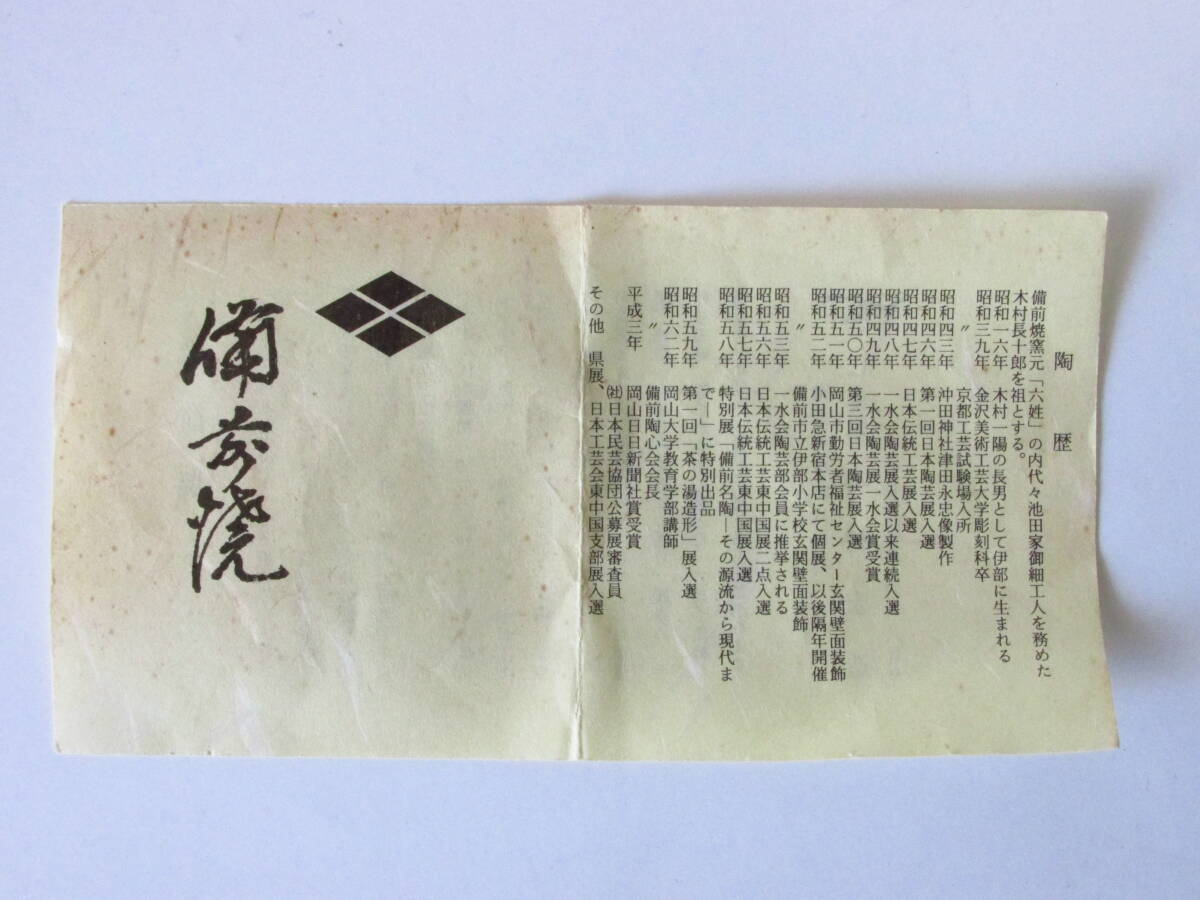 陶歴
備前焼窯元「六姓」の内代々池田家御細工人を務めた
木村長十郎を祖とする。
昭和一六年 木村一陽の長男として伊部に生まれる
昭和三九年 金沢美術工芸大学彫刻科卒
〃 京都工芸試験場入所
昭和四三年 沖田神社津田永忠像製作
昭和四六年 第一回日本陶芸展入選
昭和四七年 日本伝統工芸展入選
昭和四八年 一水会陶芸展入選以来連続入選
昭和四九年 一水会陶芸展一水会賞受賞
昭和五〇年 第三回日本陶芸展入選
昭和五一年 岡山市勤労者福祉センター玄関壁面装飾
昭和五二年 小田急新宿本店にて個展、以後隔年開催
〃 備前市立伊部小学校玄関壁面装飾
昭和五三年 一水会陶芸部会員に推挙される
昭和五六年 日本伝統工芸東中国展二点入選
昭和五七年 日本伝統工芸東中国展入選
昭和五八年 特別展「備前名陶―その源流から現代ま
で―」に特別出品
昭和五九年 第一回「茶の湯造形」展入選
昭和六二年 岡山大学教育学部講師
〃 備前陶心会会長
平成三年 岡山日日新聞社賞受賞
㈳日本民芸協団公募展審査員
その他 県展、日本工芸会東中国支部展入選
備前焼